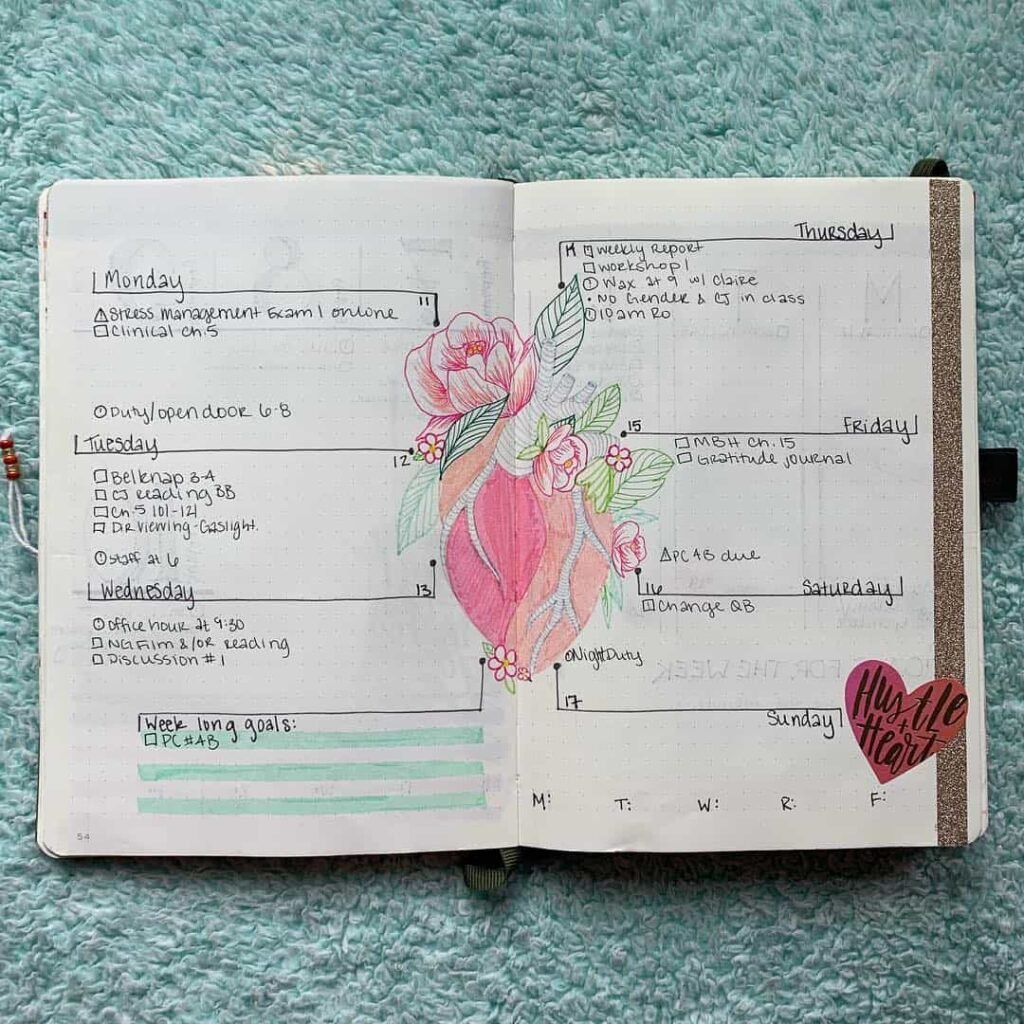 Monday
11
Stress management Exam 1 online
Clinical ch.5
Duty/open door 6-8
Tuesday
12
Belknap 3-4
CJ reading BB
Ch.5 101-121
DR viewing-Gaslight
Staff at 6
Wednesday
13
Office hour at 9:30
NG Film &/or reading
Discussion #1
Week long goals:
PC #4B
54
Thursday
14
weekly Report
workshop 1
Wax at 9 w/ Claire
• No Gender & CJ in class
10am Ro
15
Friday
MBH Ch. 15
Gratitude journal
PC 4B due
16
Saturday
Change QB
Night Duty
17
Sunday
Hustle
+
Heart
M: T: W: R: F:
FOR THE WEEK